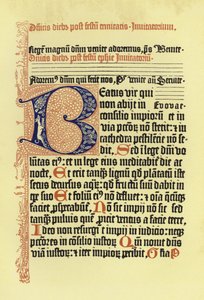 Dñicis diebus post festũ trinitatis Invitatorium,
Regẽ magnũ dñm venite adoremus, ps Venite
Dñicis diebus post festũ ephie Invitatoriũ
Adorem⁹ dñm qui fecit nos, Ps venite añ Seruite
Beatus vir qui
non abijt in Evovae
consilio impiorũ et in
via pctorũ nõ stetit: et in
cathedra pestilẽtie nõ se-
dit, Sed ĩ lege dñi vo-
lũtas ei⁹: et in lege eius meditabit̃ die ac
nocte, Et erit tanq̃ lignũ qd̃ plãtatũ iste
secus decursus aq̃rũ: qd̃ fructũ suũ dabit in
tp̃e suo Et foliũ ei⁹ nõ defluet: et oĩa q̃cũq;
faciet, prosperabũt̃, Nõ sic impij nõ sic: sed
tanq̃ puluis quẽ proicit ventus a facie terre,
Ideo non resurgũt impij in iudicio: neq;
pctores in cõsilio iustorũ Qm̃ nouit dñs
viã iustorũ: et iter impiorũ peribit, Gl̃ia P